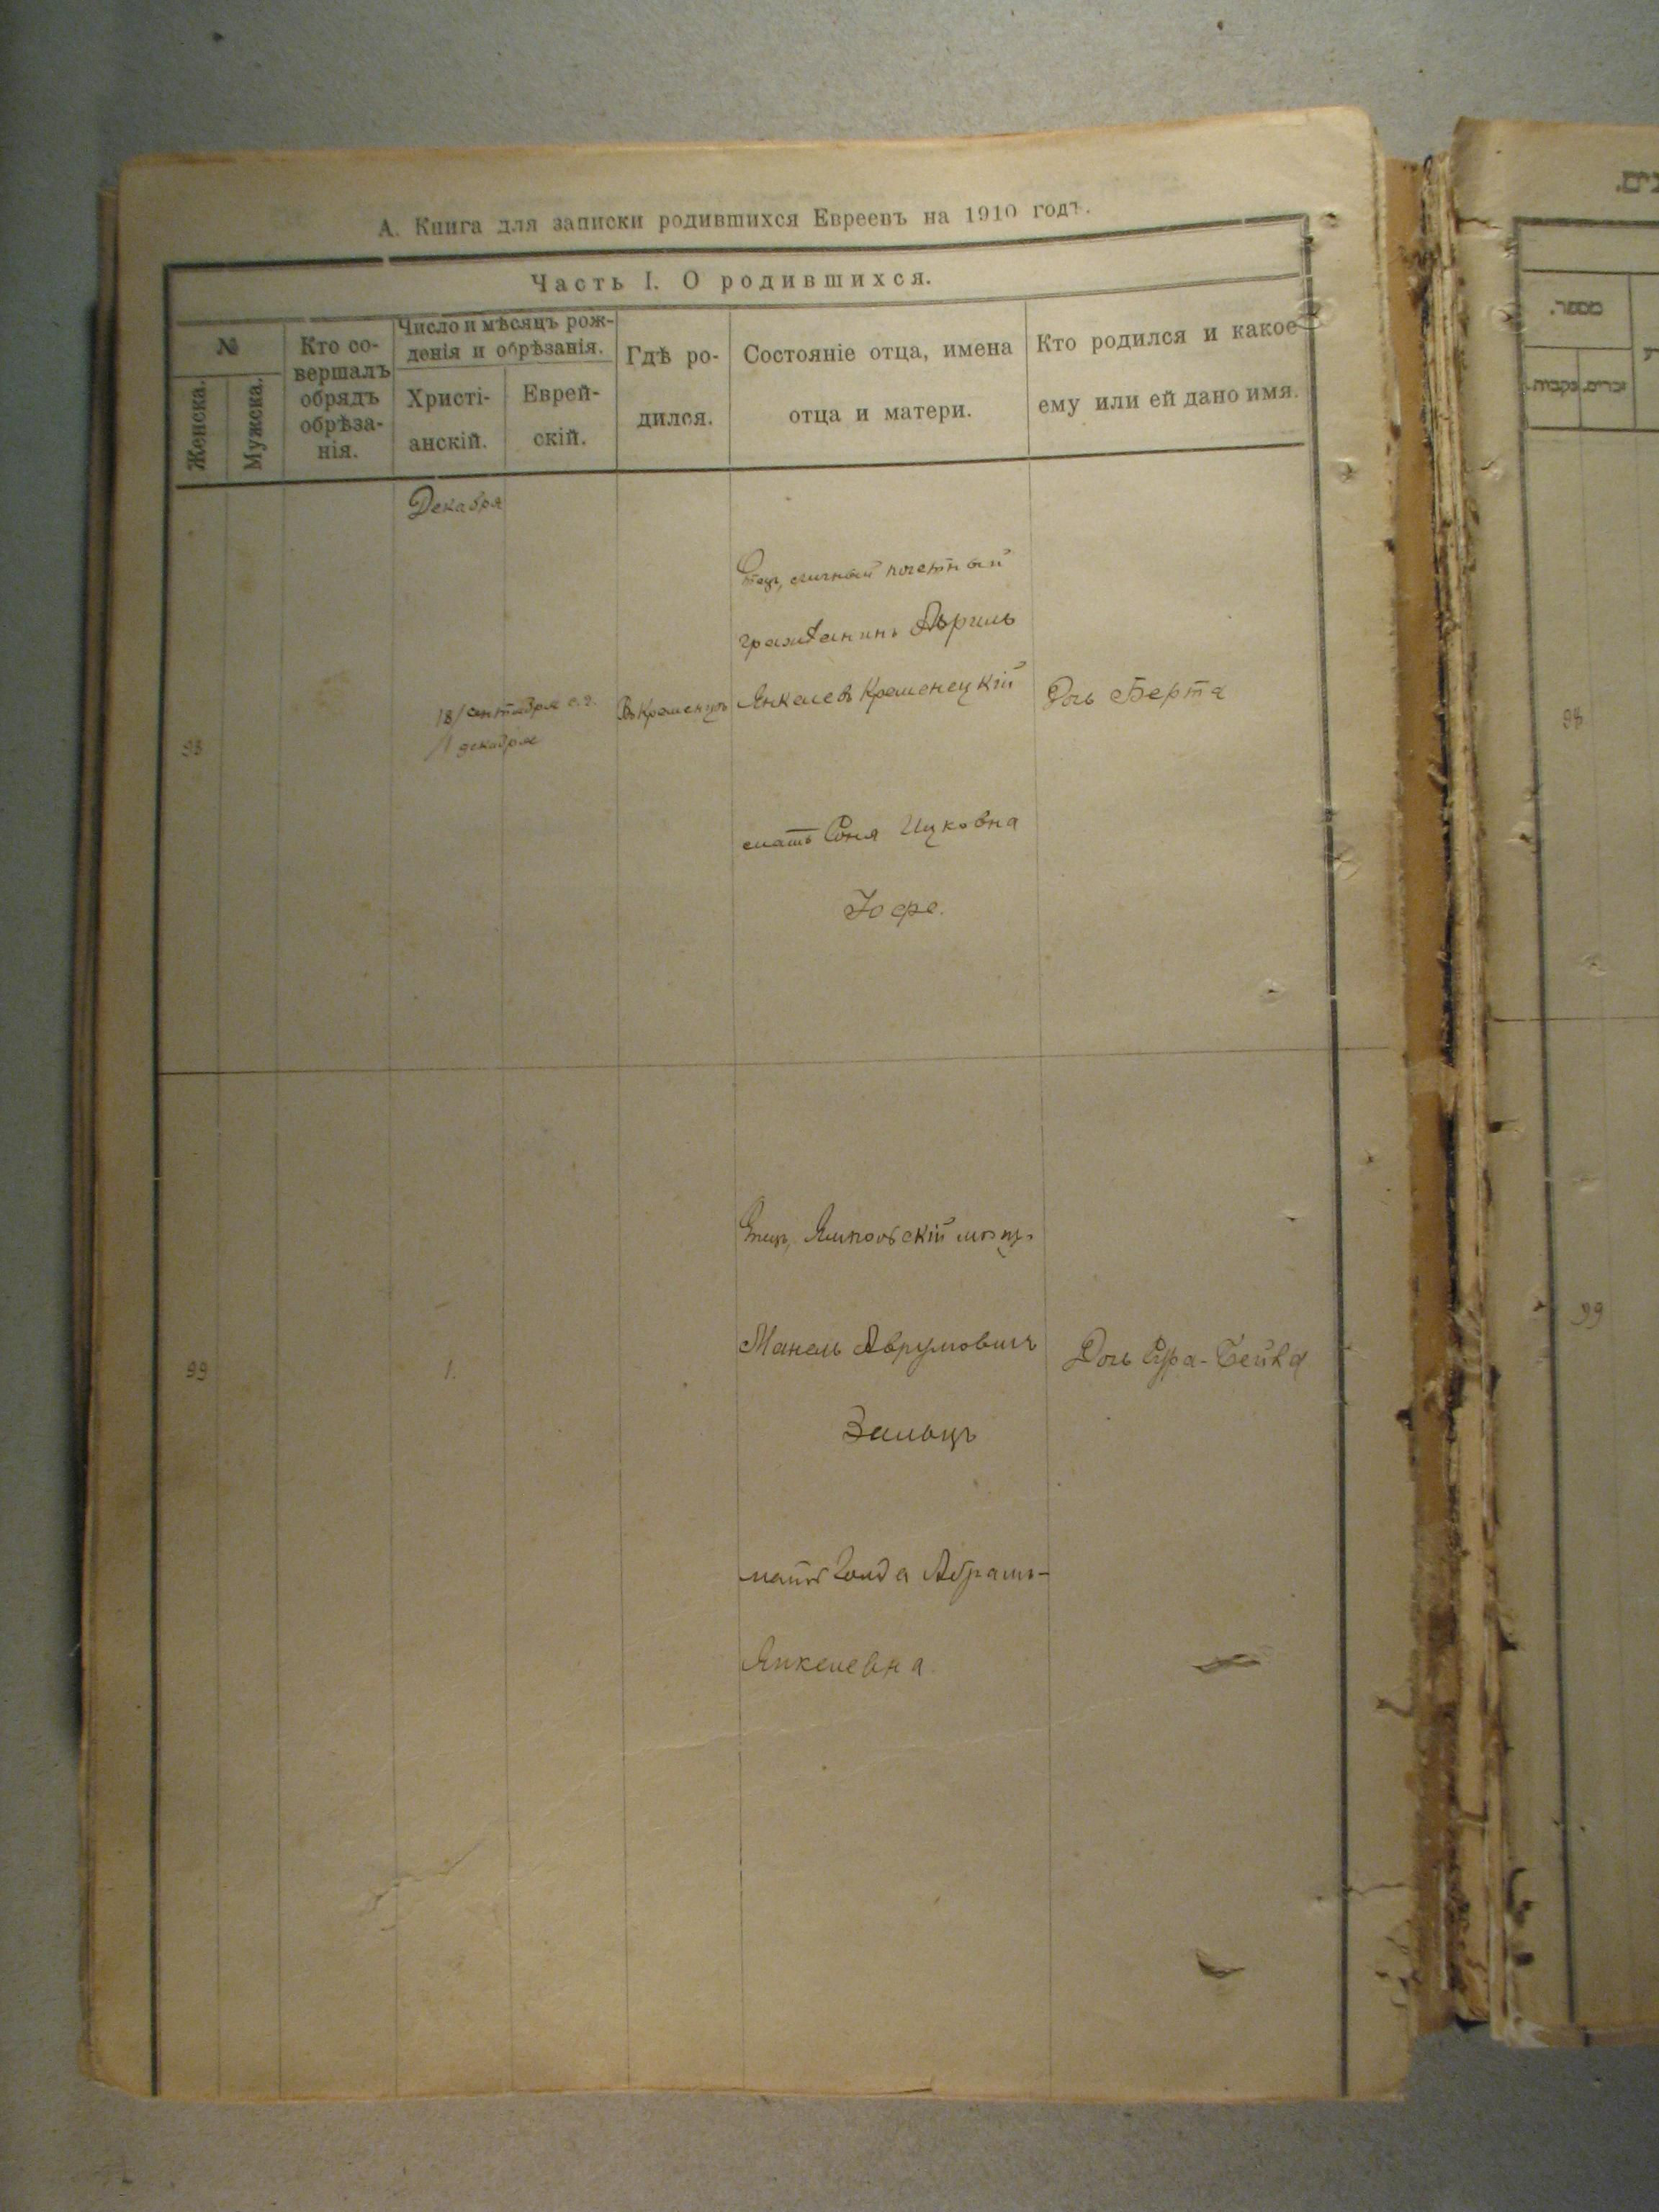 А. Книга для записки родившихся Евреевъ на 1910 годъ.
Часть I. О родившихся.
№
Женска.
Мужска.
Кто со-
вершалъ
обрядъ
обрѣза-
нія.
Число и мѣсяцъ рож-
денія и обрѣзанія.
Христі-
анскій.
Еврей-
скій.
Гдѣ ро-
дился.
Состояніе отца, имена
отца и матери.
Кто родился и какое
ему или ей дано имя.
Декабря
98
18/ сентября с.г.
1 декабря
Въ Кременцѣ
Отецъ, личный почетный
гражданинъ
Янкелевъ Кременецкій
мать Соня Ицковна
Юфе.
Дочь Берта
99
1.
Отецъ, Ямпольскій мѣщ.
Манель Аврумовичъ
Зальцъ
мать Голда Абрамъ-
Янкелевна.
Дочь Сура-Бейла
מספר.
זכרים.
נקבות.
98
99